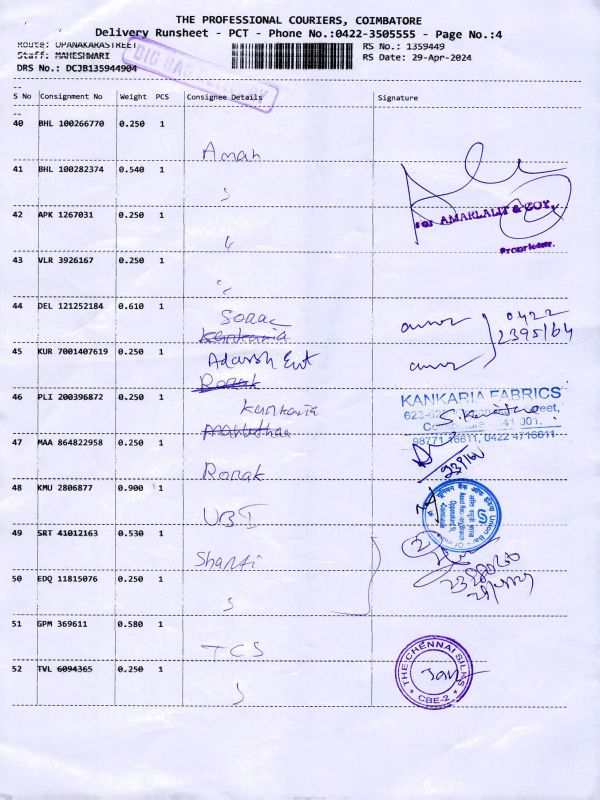 THE PROFESSIONAL COURIERS, COIMBATORE
Delivery Runsheet - PCT - Phone No.:0422-3505555 - Page No.:4
Route: OPANAKARASTREET
RS No.: 1359449
Staff: MAHESHWARI
RS Date: 29-Apr-2024
DRS No.: DCJB135944904
BIG
S No Consignment No Weight PCS Consignee Details Signature
40 BHL 100266770 0.250 1
Aman
41 BHL 100282374 0.540 1
For AMARLALIT & COY.
Proprietor.
42 APK 1267031 0.250 1
43 VLR 3926167 0.250 1
44 DEL 121252184 0.610 1
Kankaria
0422
2395164
45 KUR 7001407619 0.250 1
Adarsh Ent
Ronak
46 PLI 200396872 0.250 1
Kankaria
KANKARIA FABRICS
98771 16611, 0422 4716611
47 MAA 864822958 0.250 1
Ronak
48 KMU 2806877 0.900 1
UBI
Union Bank Of India
49 SRT 41012163 0.530 1
Shanti
2
50 EDQ 11815076 0.250 1
51 GPM 369611 0.580 1
TCS
THE CHENNAI SILKS
CBE-2
52 TVL 6094365 0.250 1